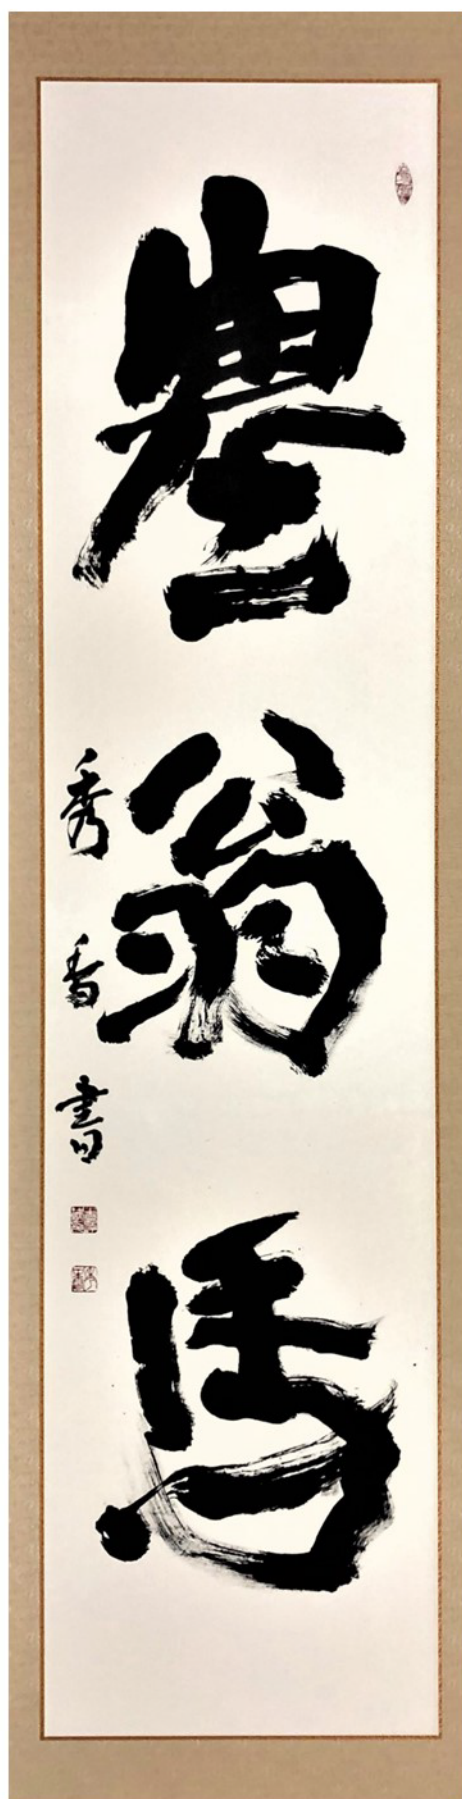 塞翁馬
秀香書